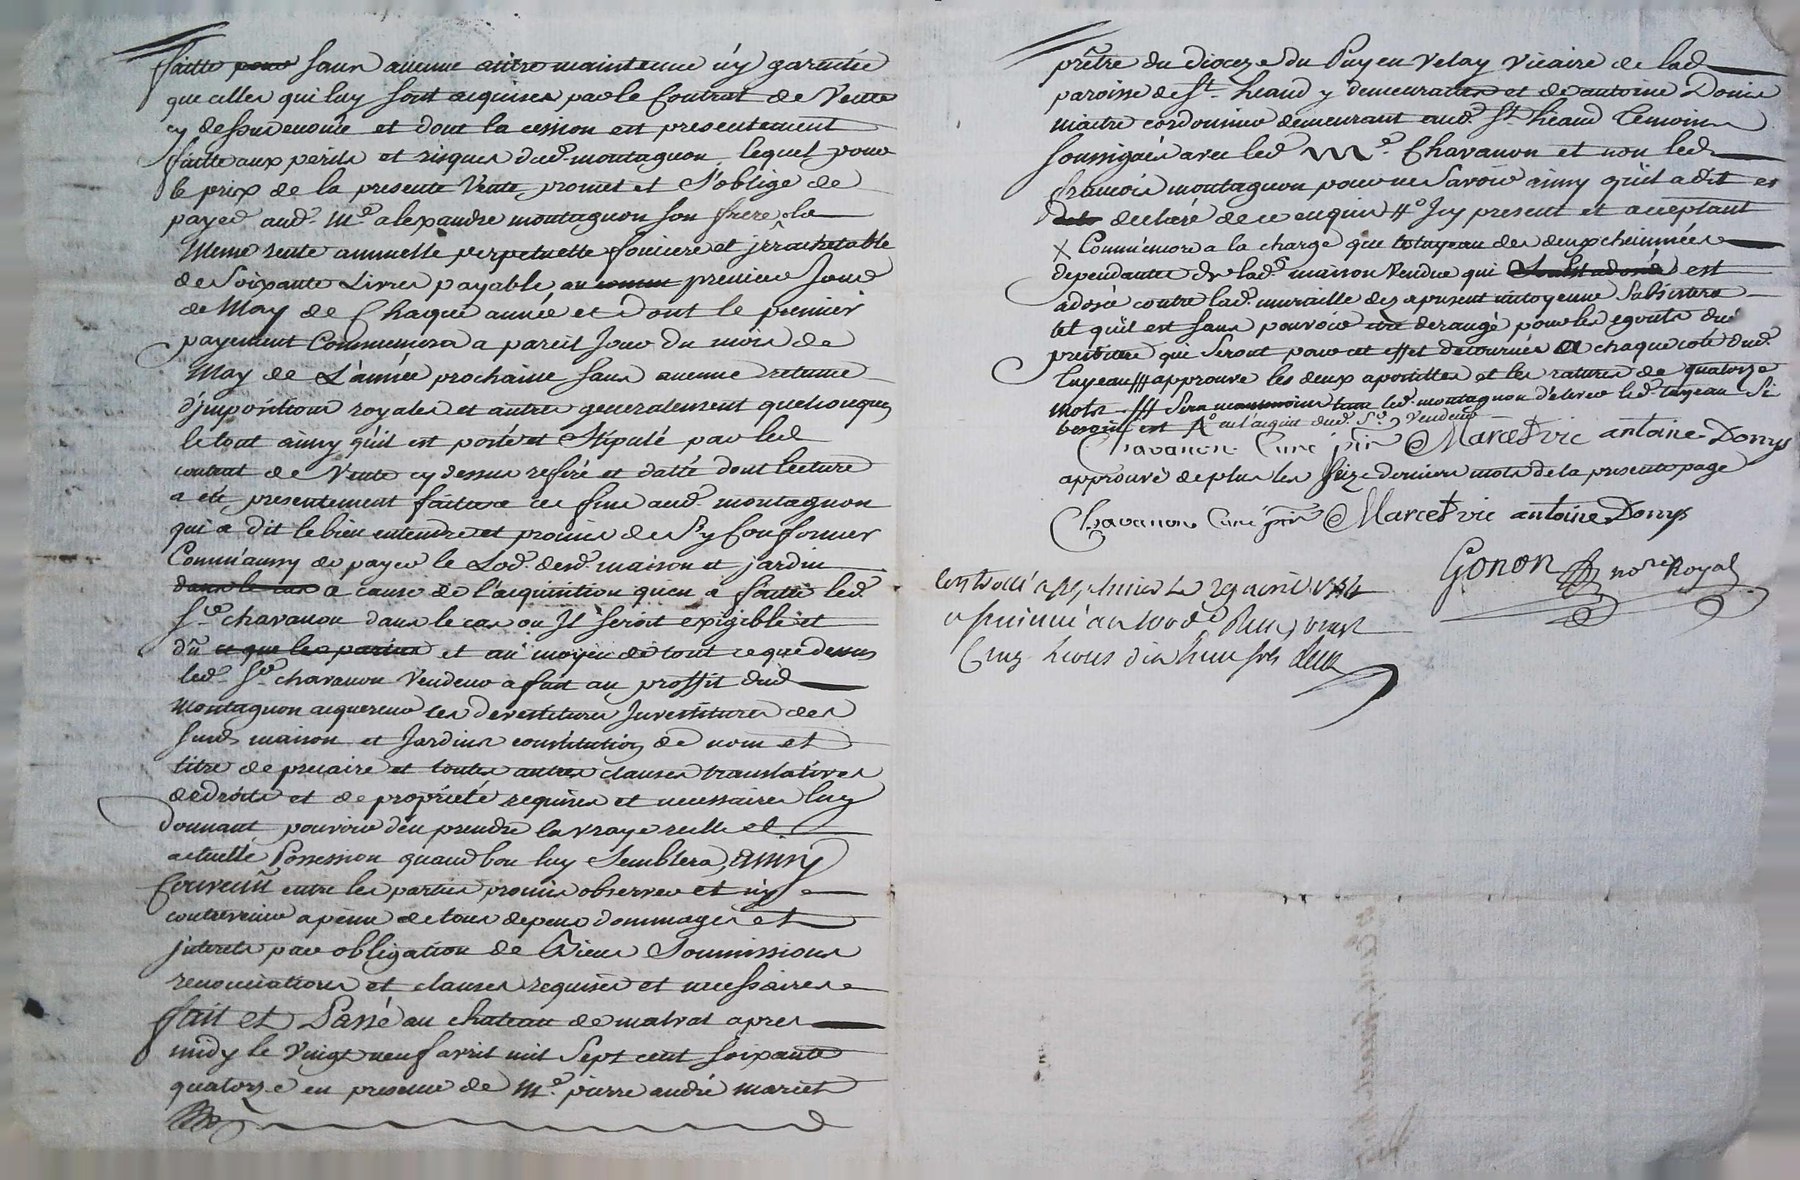 faitte pour sans aucune autre maintenue n'y garantie
que celles qui luy sont acquises par le Contrat de Vente
cy dessus enoncé et dont la cession est presentement
faitte aux perils et risques dud. montagnon, lequel pour
le prix de la presente Vente, promet et s'oblige de
payer aud. Me. alexandre montagnon son frere, la
meme rente annuelle perpetuelle fonciere et jrrachetable
de soixante Livres payable au premier Jour
de May de Chaque année et dont le premier
payement Commencera a pareil Jour du mois de
May de L'année prochaine sans aucune retenue
d'jmpositions royales et autres generalement quelconques
le tout ainsy qu'il est porté et stipulé par led.
contrat de Vente cy dessus referé et datté dont lecture
a été presentement faitte a ces fins aud. montagnon
qui a dit le bien entendre et promis de s'y Conformer
Comm'aussy de payer le Lod. desd. maison et jardin
dans le cas a cause de l'acquisition qu'en a faitte led.
Sr. chavanon dans le cas ou Il seroit exigible et
dû ce que les parties et au moyen de tout ce que dessus
led. Sr. chavanon Vendeur a fait au proffit dud.
Montagnon acquereur les devestitures Investitures des
susd. maison et Jardins constitution de nom et
titre de precaire et toutes autres clauses translatives
de droits et de propriété requises et necessaires luy
donnant pouvoir d'en prendre la vraye reelle et
actuelle Possession quand bon luy semblera, ainsy
Convenû entre les parties promis observer et n'y
contrevenir a peine de tous depens dommages et
jnterets par obligation de Biens Soumissions
renonciations et clauses requises et necessaires
fait et Passé au chateau de malval apres
midy le Vingt neuf avril mil Sept cent soixante
quatorze en presence de Me. pierre andré marcet
prêtre du Dioceze du Puy en Velay Vicaire de lad.
paroisse de St. heand y demeurant et de antoine Donis
Maitre cordonnier demeurant aud. St. heand Temoins
soussignés avec led. Me. Chavanon et non led.
francois montagnon pour ne Savoir ainsy qu'il a dit et
declaré de ce enquis # Icy present et acceptant
x Comm'encore a la charge que le tuyeau des deux cheminées
dependantes de lad. maison Vendue qui est
adossée contre lad. muraille des a present mitoyenne Subsistera
tel qu'il est sans pouvoir etre derangé pour les egouts du
presbitere que seront pour cet effet detournés a chaque coté dud.
tuyeau /// approuvé les deux apostilles et les ratures de quatorze
mots /// Sera neanmoins tenu led. montagnon d'elever led. tuyeau Si
besoin est en l'acquit dud. Sr. Vendeur
Chavanon Curé Marcet vic antoine Donys
approuvé de plus les seize derniers mots de la presente page
Chavanon Curé Marcet vic antoine Donys
Gonon nore Royal
Controllé a le 29 avril 1774